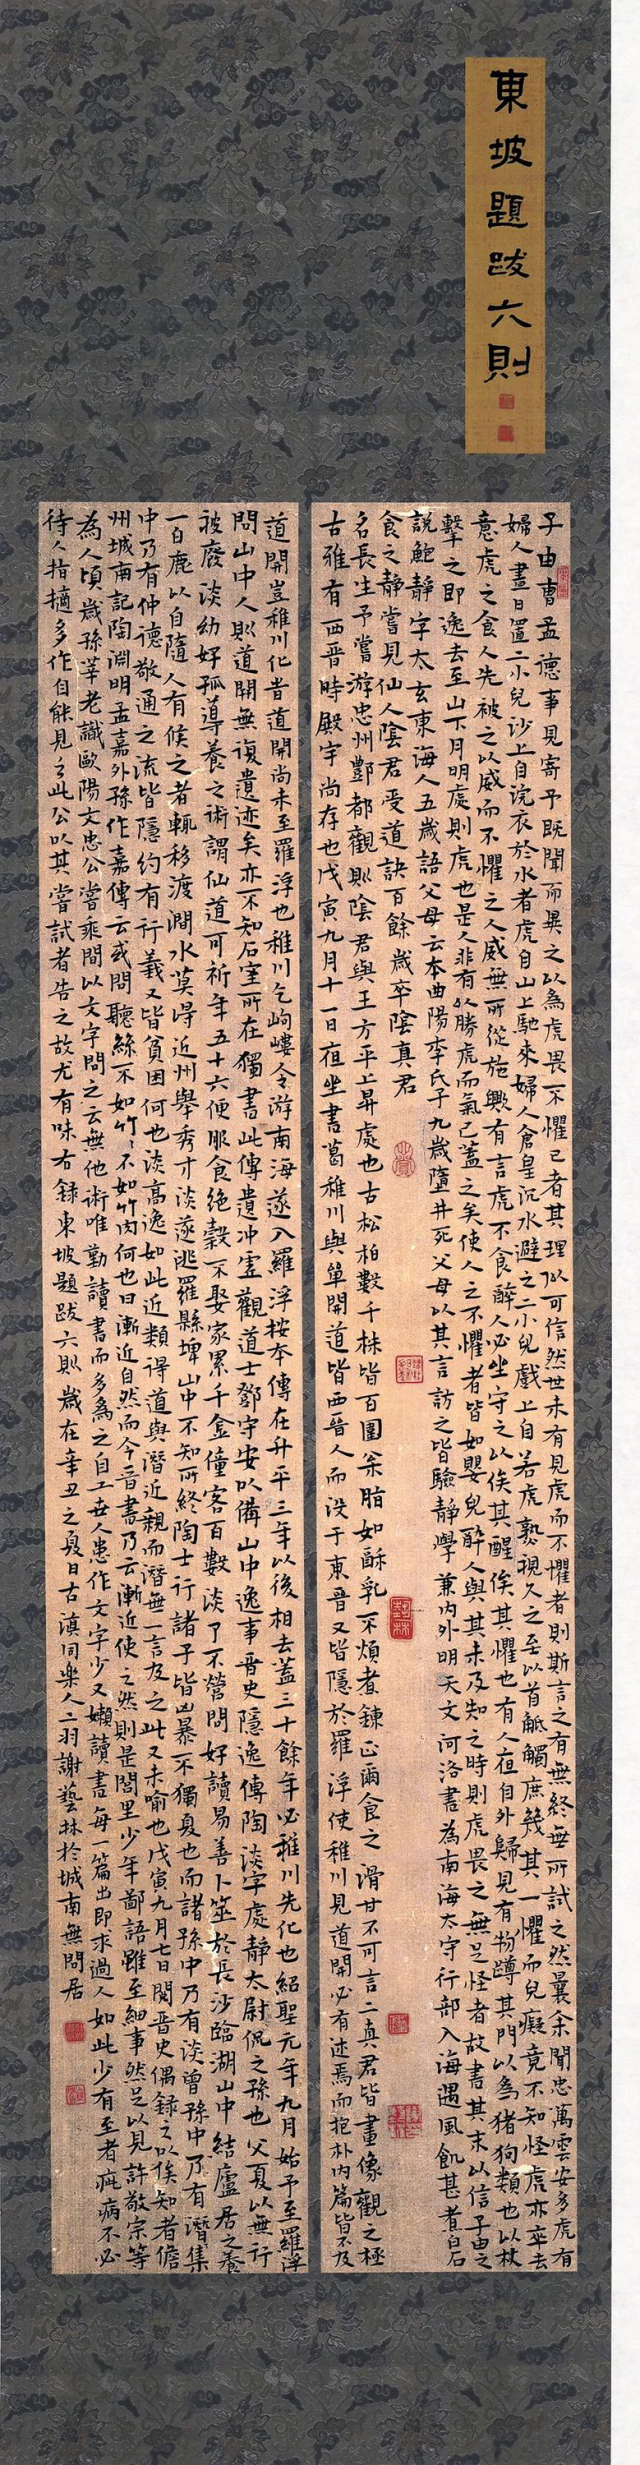 東坡題跋六則
子由書孟德事見寄予既聞而異之以為虎畏不懼己者其理似可信然世未有見虎而不懼者則斯言之有無終無所試之然曩余聞忠萬雲安多虎有
婦人晝日置二小兒沙上自浣衣於水者虎自山上馳來婦人倉皇沉水避之二小兒戲上自若虎熟視久之至以首觝觸庶幾其一懼而兒癡竟不知怪虎亦卒去
意虎之食人先被之以威而不懼之人威無所從施歟有言虎不食醉人必坐守之以俟其醒俟其懼也有人夜自外歸見有物蹲其門以為猪狗類也以杖
擊之即逸去至山下月明處則虎也是人非有以勝虎而氣已蓋之矣使人之不懼者皆如嬰兒醉人與其未及知之時則虎畏之無足怪者故書其末以信子由之
說鮑靜字太玄東海人五歲語父母云本曲陽李氏子九歲墮井死父母以其言訪之皆驗靜學兼内外明天文河洛書為南海太守行部入海遇風飢甚煮白石
食之靜嘗見仙人陰君受道訣百餘歲卒陰真君
名長生予嘗游忠州酆都觀則陰君與王方平上昇處也古松柏數千株皆百圍松脂如酥乳不煩煮鍊正爾食之滑甘不可言二真君皆畫像觀之極
古雅有西晉時殿宇尚存也戊寅九月十一日夜坐書葛稚川與單開道皆西晉人而没于東晉又皆隱於羅浮使稚川見道開必有述焉而抱朴内篇皆不及
道開豈稚川化昔道開尚未至羅浮也稚川乞岣嶁令游南海遂入羅浮按本傳在升平三年以後相去蓋三十餘年必稚川先化也紹聖元年九月始予至羅浮
問山中人則道開無復遺迹矣亦不知石室所在獨書此傳遺冲虛觀道士鄧守安以備山中逸事晉史隱逸傳陶淡字處靜太尉侃之孫也父夏以無行
被廢淡幼好孤導養之術謂仙道可祈年五十六便服食絕穀不娶家累千金僮客百數淡了不營問好讀易善卜筮於長沙臨湖山中結廬居之養
一白鹿以自隨人有候之者輒移渡澗水莫得近州舉秀才淡遂逃羅縣埤山中不知所終陶士行諸子皆凶暴不獨夏也而諸孫中乃有淡曾孫中乃有潛集
中乃有仲德敬通之流皆隱約有行義又皆貧困何也淡高逸如此近類得道與潛近親而潛無一言及之此又未喻也戊寅九月七日閱晉史偶錄之以俟知者儋
州城南記陶淵明孟嘉外孫作嘉傳云或問聽絲不如竹竹不如肉何也曰漸近自然而今晉書乃云漸近使之然則是閭里少年鄙語雖至細事然足以見許敬宗等
為人頃歲孫莘老識歐陽文忠公嘗乘間以文字問之云無他術唯勤讀書而多為之自工世人患作文字少又嬾讀書每一篇出即求過人如此少有至者疵病不必
待人指擿多作自能見之此公以其嘗試者告之故尤有味右錄東坡題跋六則歲在辛丑之夏日古滇同樂人二羽謝藝林於城南無悶居